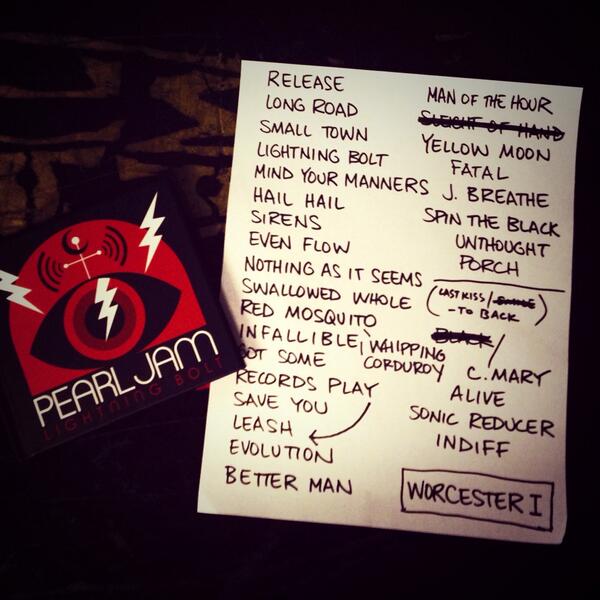 PEARL JAM
LIGHTNING BOLT
RELEASE
LONG ROAD
SMALL TOWN
LIGHTNING BOLT
MIND YOUR MANNERS
HAIL HAIL
SIRENS
EVEN FLOW
NOTHING AS IT SEEMS
SWALLOWED WHOLE
RED MOSQUITO
INFALLIBLE, WHIPPING
GOT SOME CORDUROY
RECORDS PLAY
SAVE YOU
LEASH
EVOLUTION
BETTER MAN
MAN OF THE HOUR
SLEIGHT OF HAND
YELLOW MOON
FATAL
J. BREATHE
SPIN THE BLACK
UNTHOUGHT
PORCH
(LAST KISS/SMILE
-TO BACK)
BLACK/
C. MARY
ALIVE
SONIC REDUCER
INDIFF
WORCESTER I